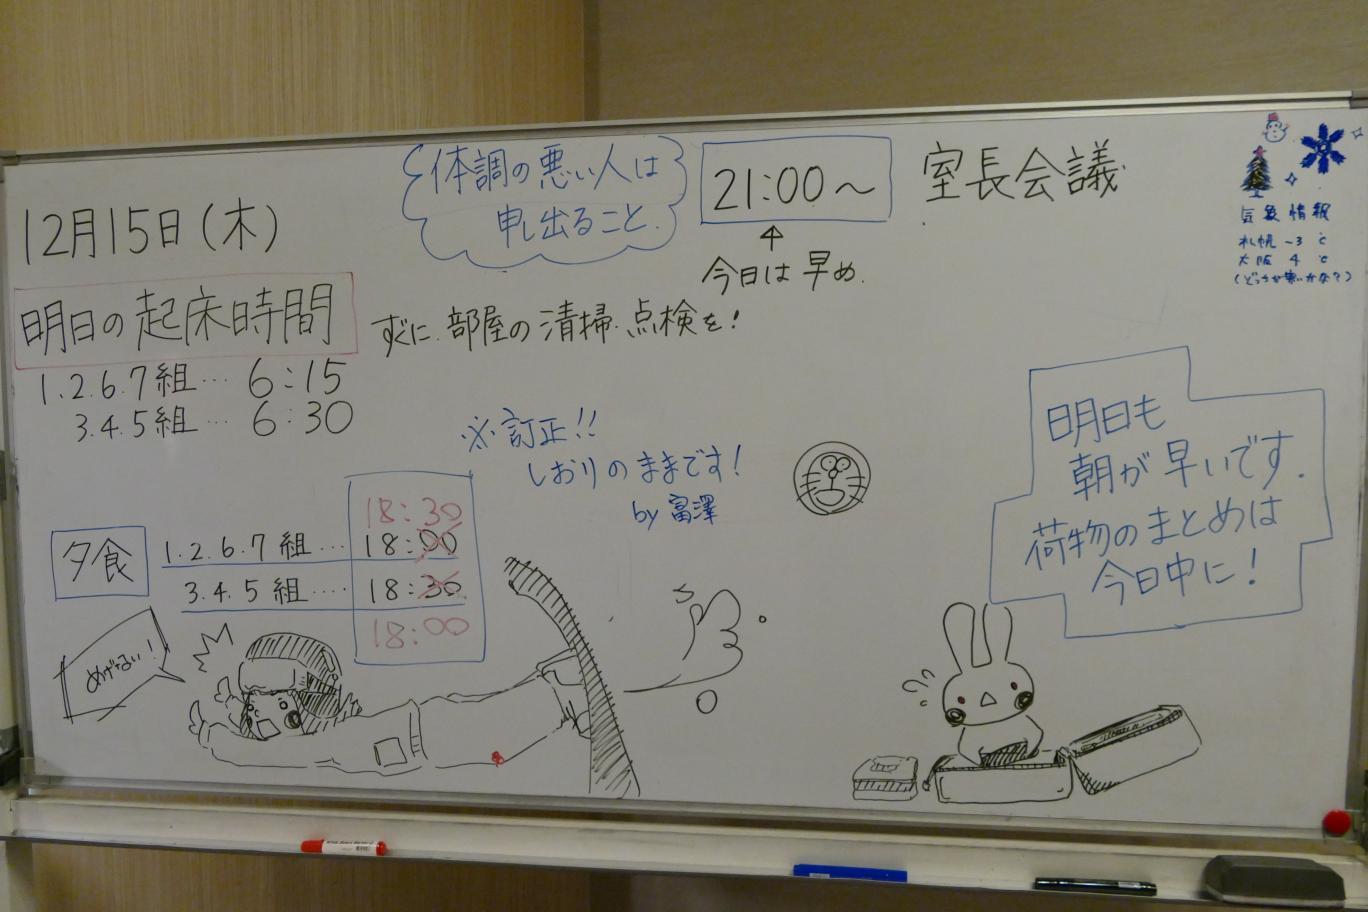 12月15日(木)
体調の悪い人は
申し出ること.
21:00～ 室長会議
今日は早め.
気象情報
札幌 -3℃
大阪 4℃
(どっちが寒いかな?)
明日の起床時間
すぐに部屋の清掃.点検を!
1.2.6.7組… 6:15
3.4.5組… 6:30
※訂正!!
しおりのままです!
by 富澤
明日も
朝が早いです.
荷物のまとめは
今日中に!
夕食
18:30
1.2.6.7組… 18:00
3.4.5組…. 18:30
18:00
めげない!